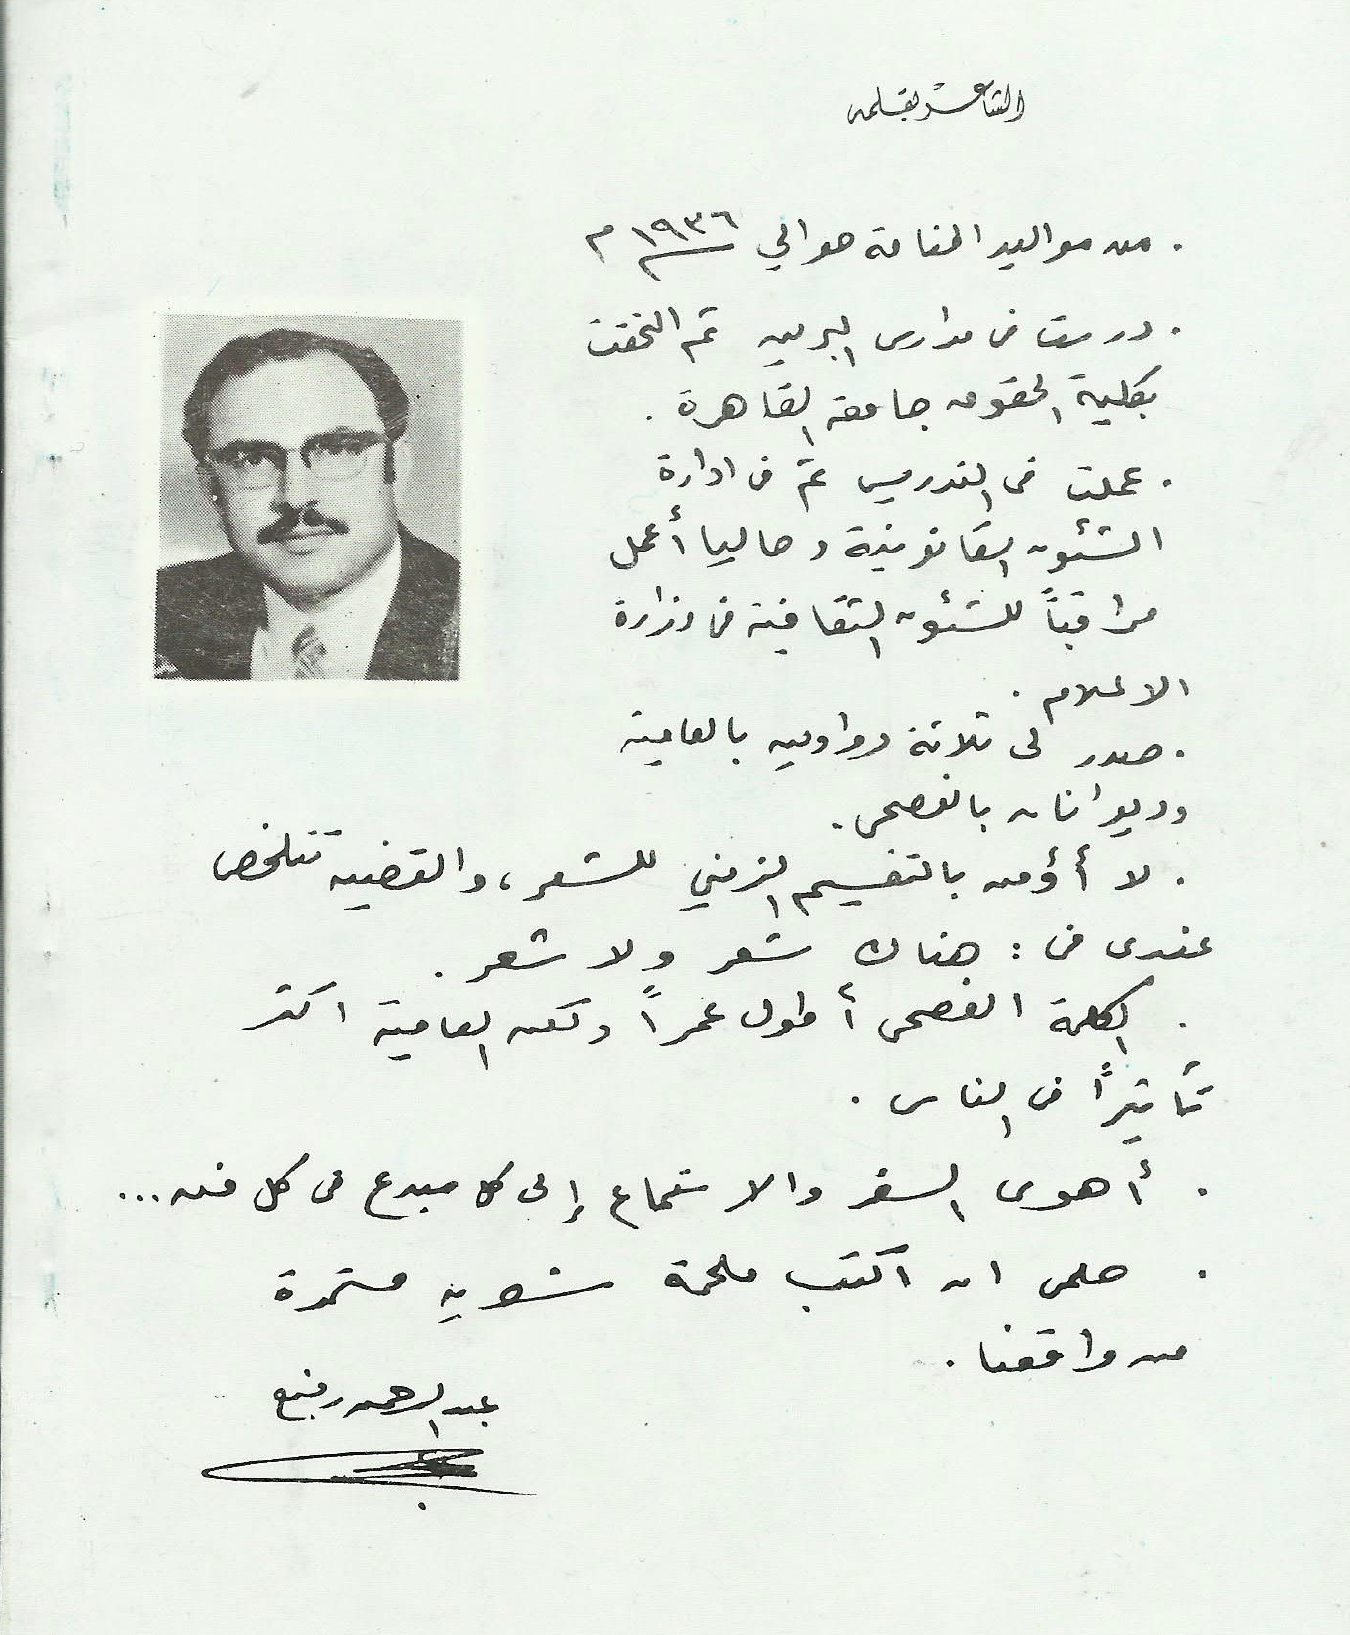 الشاعر بقلمه
. من مواليد المنامة حوالي ١٩٣٦ م
. درست فى مدارس البحرين ثم التحقت
بكلية الحقوق جامعة القاهرة .
. عملت فى التدريس ثم فى ادارة
الشئون القانونية وحاليا أعمل
مراقباً للشئون الثقافية فى وزارة
الاعلام .
. صدر لى ثلاثة دواوين بالعامية
وديوانان بالفصحى .
. لا أؤمن بالتقسيم الزمني للشعر، والقضية تتلخص
عندى فى : هناك شعر ولا شعر .
. الكلمة الفصحى أطول عمراً ولكن العامية اكثر
تأثيراً فى الناس .
. أهوى السفر والاستماع إلى كل مبدع فى كل فن ...
. حلمى ان اكتب ملحمة شعرية مستمدة
من واقعنا .
عبدالرحمن رفيع